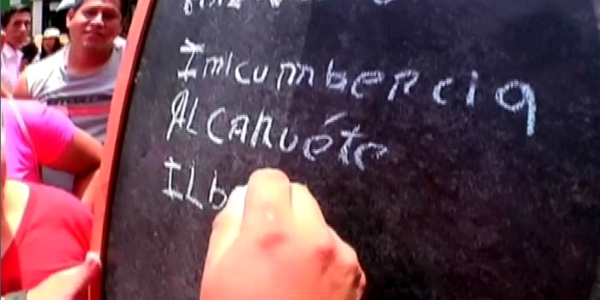 Imcumbencia
ALCAHuéte
ILb